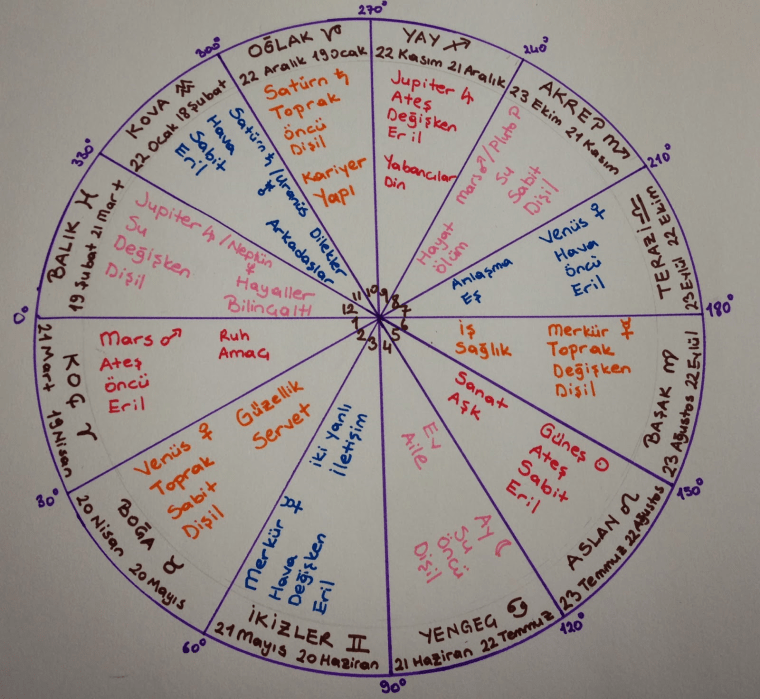 0°
21 Mart 19 Nisan
KOÇ ♈
Mars ♂
Ateş
Öncü
Eril
Ruh
Amaç
1
30°
20 Nisan 20 Mayıs
BOĞA ♉
Venüs ♀
Toprak
Sabit
Dişil
Güzellik
Servet
2
60°
21 Mayıs 20 Haziran
İKİZLER ♊
Merkür ☿
Hava
Değişken
Eril
İki Yanlı
İletişim
3
90°
21 Haziran 22 Temmuz
YENGEÇ ♋
Ay ☾
Su
Öncü
Dişil
Ev
Aile
4
120°
23 Temmuz 22 Ağustos
ASLAN ♌
Güneş ☉
Ateş
Sabit
Eril
Sanat
Aşk
5
150°
23 Ağustos 22 Eylül
BAŞAK ♍
Merkür ☿
Toprak
Değişken
Dişil
İş
Sağlık
6
180°
23 Eylül 22 Ekim
TERAZİ ♎
Venüs ♀
Hava
Öncü
Eril
Anlaşma
Eş
7
210°
AKREP ♏
23 Ekim 21 Kasım
Mars ♂/Pluto P
Su
Sabit
Dişil
Hayat
Ölüm
8
240°
YAY ♐
22 Kasım 21 Aralık
Jupiter ♃
Ateş
Değişken
Eril
Yabancılar
Din
9
270°
OĞLAK ♑
22 Aralık 19 Ocak
Satürn ♄
Toprak
Öncü
Dişil
Kariyer
Yapı
10
300°
KOVA ♒
22 Ocak 18 Şubat
Satürn ♄/Uranüs
♅
Hava
Sabit
Eril
Dilekler
Arkadaşlar
11
330°
BALIK ♓
19 Şubat 21 Mart
Jupiter ♃/Neptün
♆
Su
Değişken
Dişil
Hayaller
Bilinçaltı
12